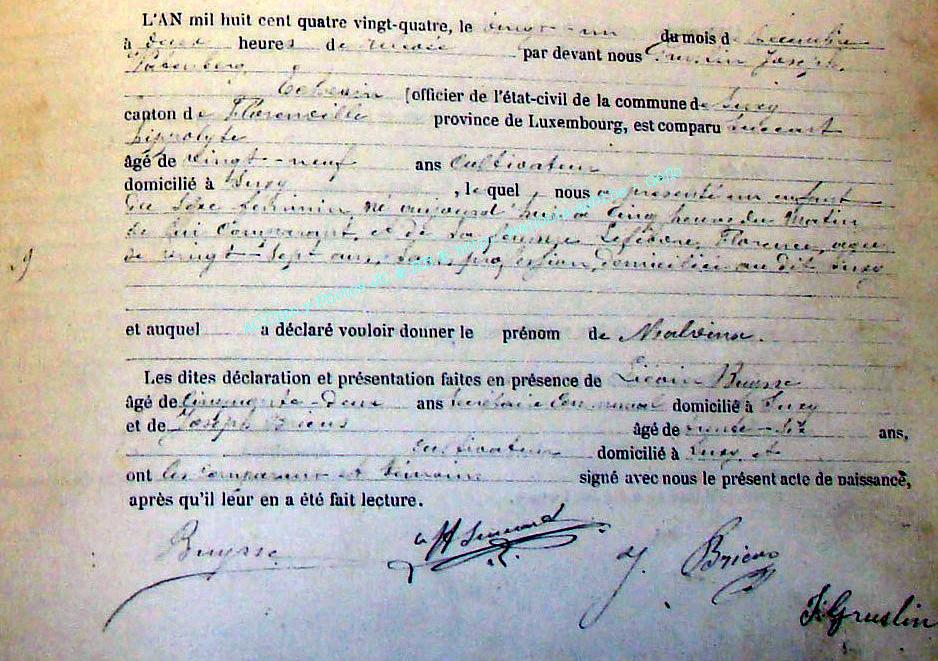 L'AN mil huit cent quatre vingt-quatre, le vingt-un du mois de Décembre
à deux heures de relevée par devant nous Gruslin Joseph
Echevin officier de l'état-civil de la commune de Suxy
canton de Florenville province de Luxembourg, est comparu
Hippolyte
âgé de vingt-neuf ans Cultivateur
domicilié à Suxy, lequel nous a présenté un enfant
du sexe féminin, né aujourd'hui à Cinq heures du Matin
de lui Comparant, et de sa femme Lefebvre, Florence, agée
de vingt-sept ans, sans profession, domiciliée au dit Suxy
19
et auquel a déclaré vouloir donner le prénom de Malvina.
Les dites déclaration et présentation faites en présence de Buysse
âgé de Cinquante-deux ans Secrétaire Communal domicilié à Suxy
et de Joseph Brieus âgé de trente-six ans,
cultivateur domicilié à Suxy et
ont les comparant et témoins signé avec nous le présent acte de naissance,
après qu'il leur en a été fait lecture.
Buysse
J. Brieus
J. Gruslin